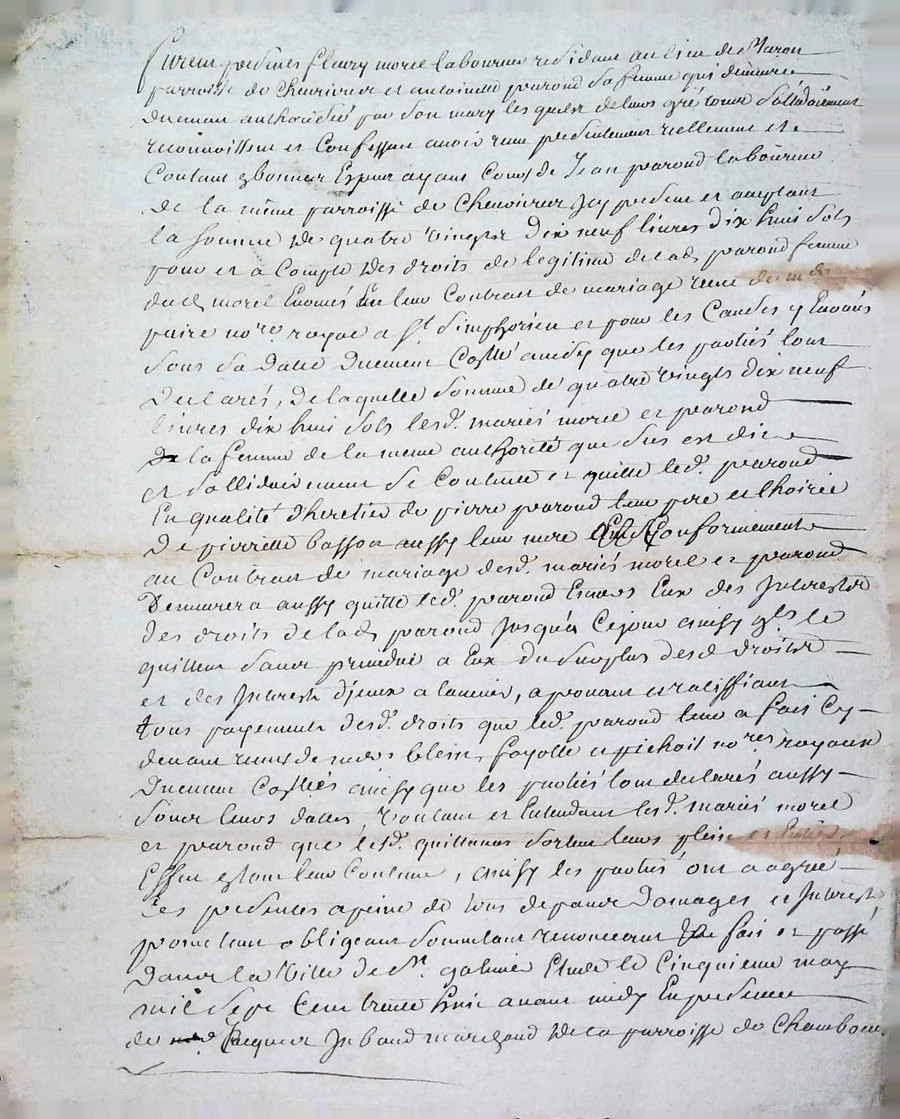 furent presens fleury morel laboureur residant au lieu de Maron
parroisse de Chevrieres et antoinette parond sa femme qui demeure
duement authorisée par son mary lesquels de leurs gré tous sollidairement
reconnoissent et Confessent avoir receu presentement reellement et
Contant en bonnes Especes ayant Cours de Jean parond laboureur
de la même parroisse de Chevrieres Icy present et acceptant
la somme de quatre vingts dix neuf livres dix huit sols
pour et a Compte des droits de legitime de lad. parond femme
dud. morel Enoncés En leur Contrat de mariage receu de me
faire nore. royal a st. simphorien et pour les Causes y Enoncés
sous sa datte duement Collé ainsy que les partiés l'ont
declarés, de laquelle somme de quatre vingts dix neuf
livres dix huit sols lesd. mariés morel et parond
la femme de la meme authorité que dus est dit
et sollidairement se Contente et quitte led. parond
En qualité d'heretier de pierre parond leur pere et hoirie
de pierrette basson aussy leur mere Conformement
au Contrat de mariage desd. mariés morel et parond
Demeurera aussy quitte led. parond Envers Eux des Interestz
des droits de lad. parond Jusqu'a Cejour ainsy qls. le
quittent sans prejudice a Eux du surplus desd. droits
et des Interests d'jceux a lavenir, aprouvant et ratiffiant
tous payements desd. droits que led. parond leur a fait Cy
devant receus de me blein, fayolle et pichoit nores royaux
Duement Collés ainsy que les partiés l'ont declarés aussy
sous leurs dattes, voulant et Entendant lesd. mariés morel
et parond que lesd. quittances sortent leurs plein et Entier
Effet selon leur Contenu, ainsy les partiés ont aagreé
les presentes a peine de tous depans Domages et Interests
promettant obligeant soumettant renonceant fait et passé
dans la ville de st. galmier Etude le Cinquieme may
mil sept Cent trente huit avant midy En presence
de Jacques Imbaud marchand de la parroisse de Chamboeuf